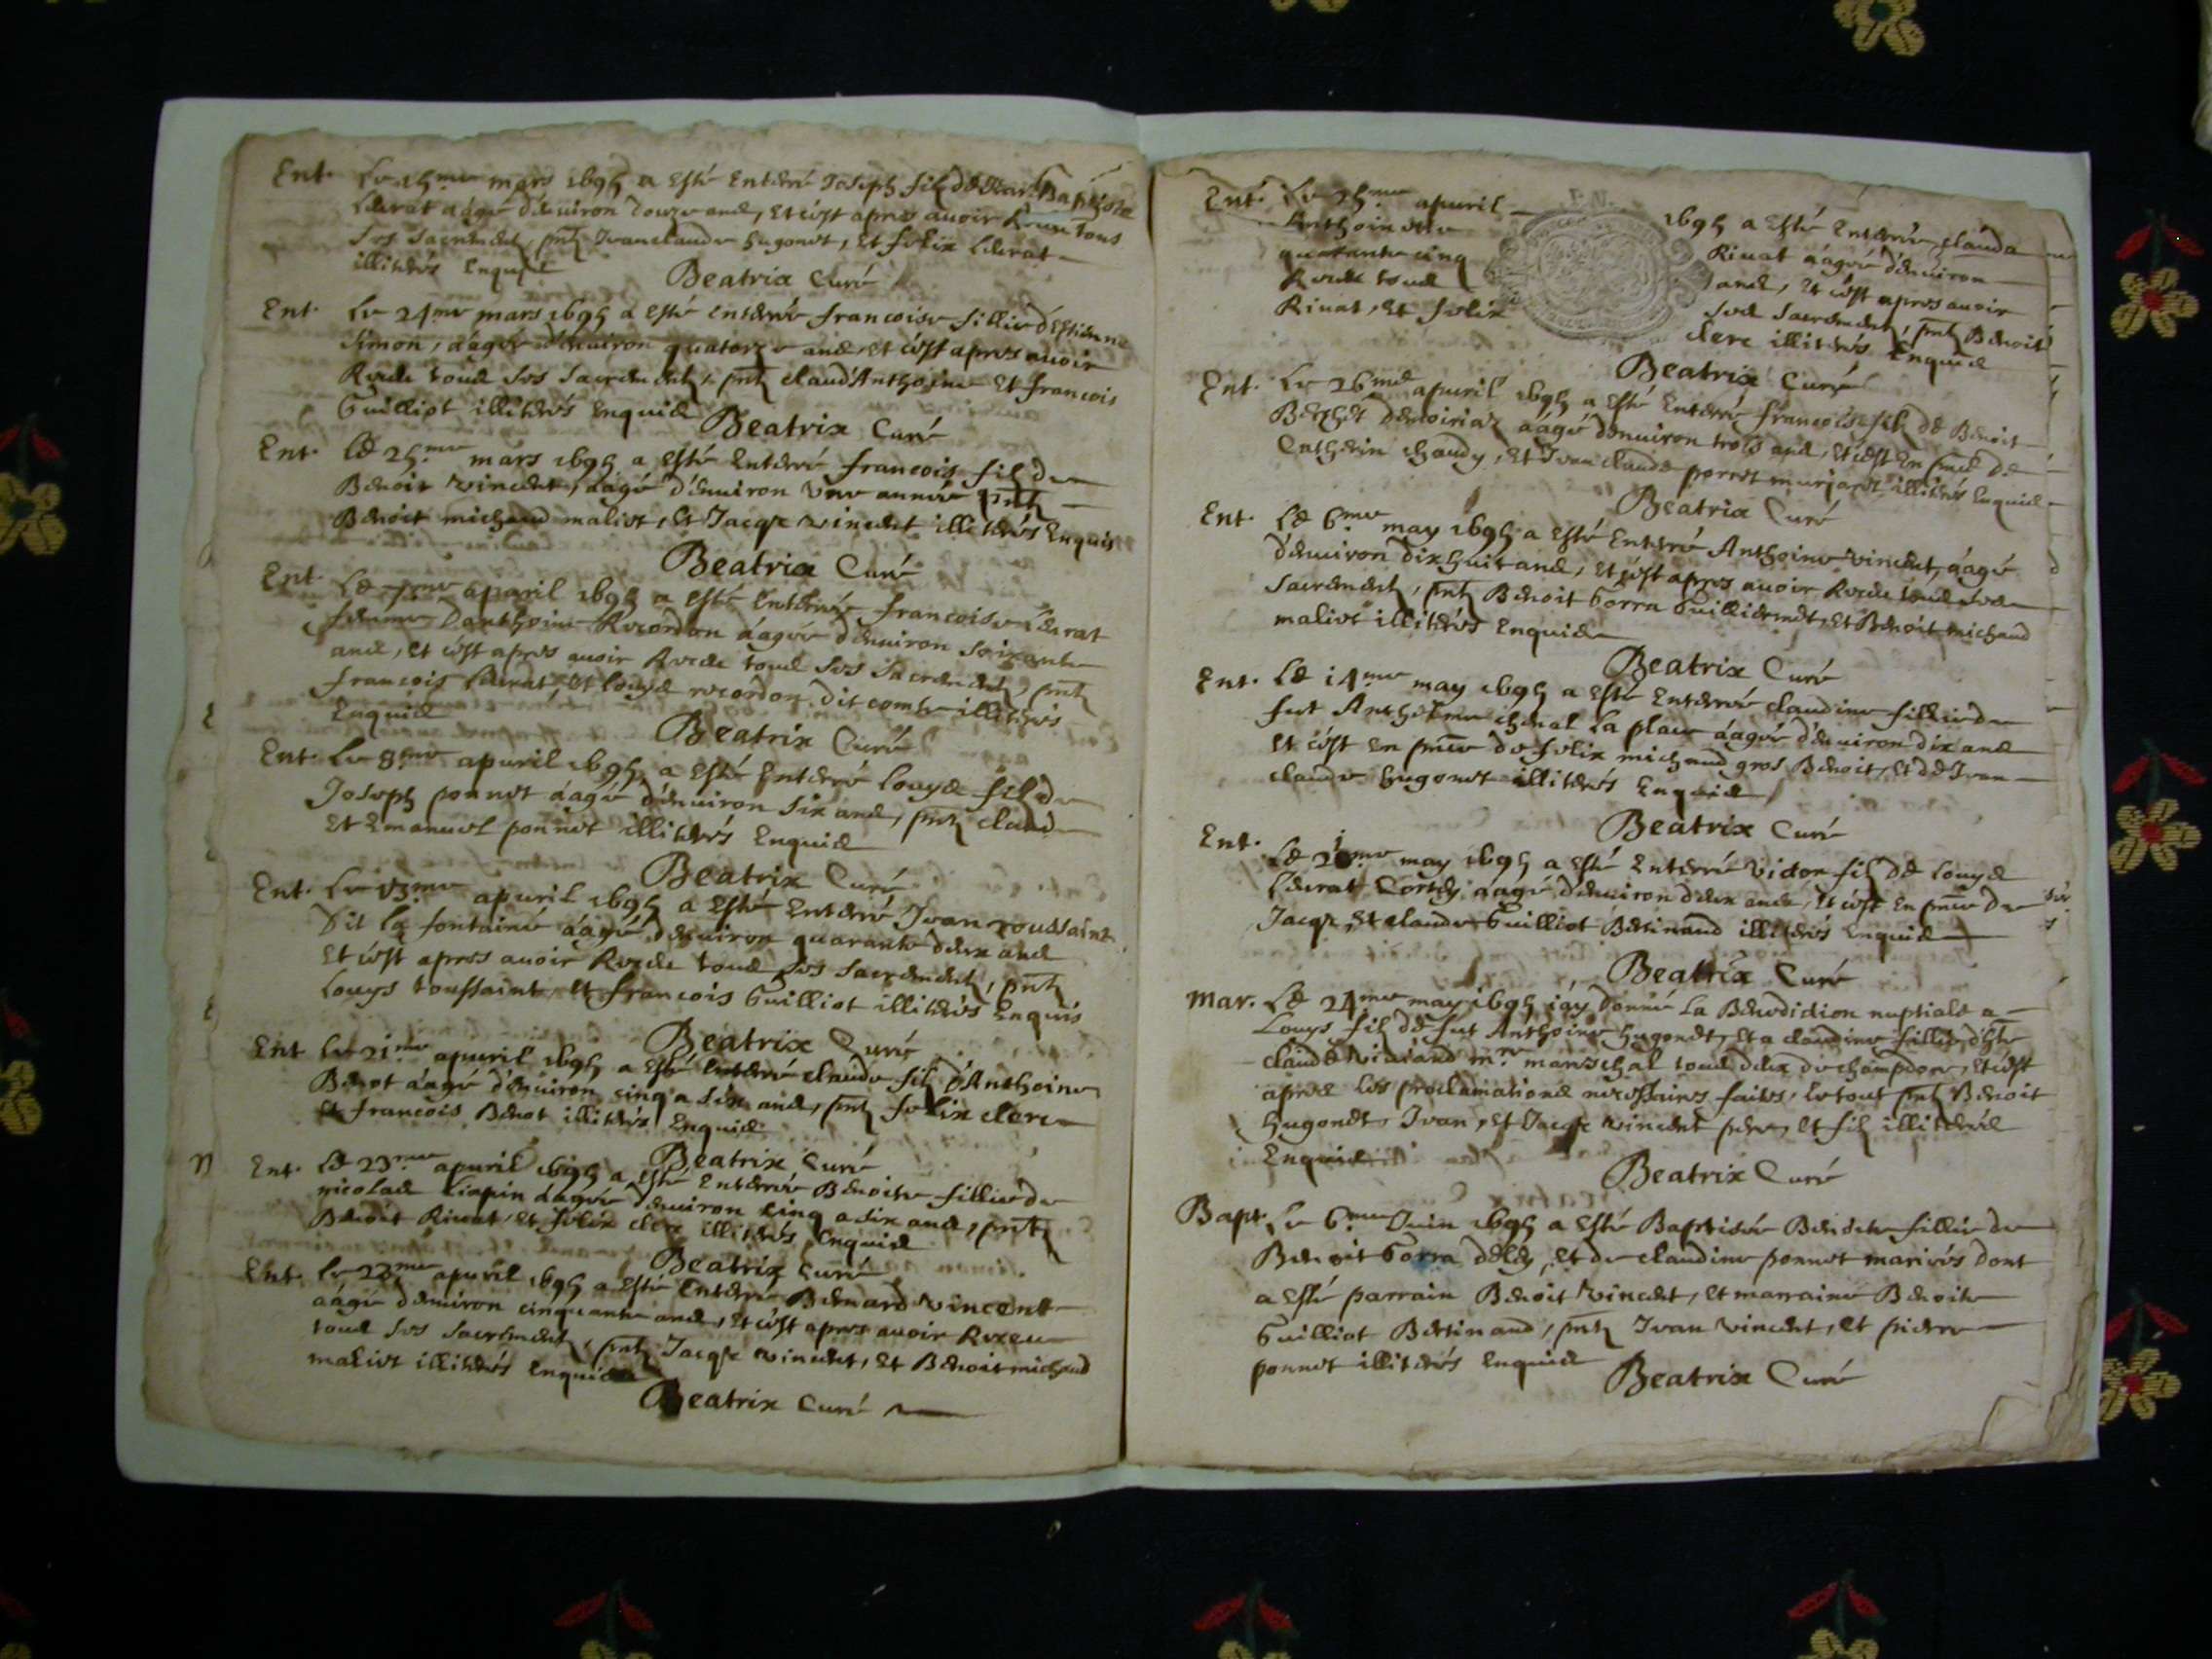 Ent. Le 15me mars 1695 a esté enterré Joseph fils de Jean Baptiste
Liurat aagé d'enuiron douze ans, et c'est apres auoir Receu tous
ses sacrements, pnts Jeanclaude hugonet, et felix Liurat
illiterés enquis
Beatrix Curé
Ent. Le 24me mars 1695 a esté enterrée francoise fillie d'Estienne
Simon, aagée d'enuiron quatorze ans, et c'est apres auoir
Receu tous ses sacrements, pnts claud'Anthoine et francois
Guilliot illiterés enquis
Beatrix Curé
Ent. Le 25me mars 1695 a esté enterré francois fils de
Benoit vincent, aagé d'enuiron une année pnts
Benoit michaud maliet, et Jacqs vincent illiterés enquis
Beatrix Curé
Ent. Le 7me apuril 1695 a esté enterrée francoise Liurat
femme d'anthoine Recordon aagée d'enuiron soixante
ans, et c'est apres auoir Receu tous ses sacrements, pnts
francois Liurat, et Louys recordon dit comte illiterés
enquis
Beatrix Curé
Ent. Le 8me apuril 1695 a esté enterré Louys fils de
Joseph ponnet aagé d'enuiron six ans, pnts claude
et Emanuel ponnet illiterés enquis
Beatrix Curé
Ent. Le 13me apuril 1695 a esté enterré Jean toussaint
dit la fontaine aagé d'enuiron quarante deux ans
et c'est apres auoir Receu tous ses sacrements, pnts
Louys toussaint, et francois Guilliot illiterés enquis
Beatrix Curé
Ent Le 21me apuril 1695 a esté enterré claude fils d'Anthoine
Benot aagé d'enuiron cinq a six ans, pnts felix clerc
et francois Benot illiterés enquis
Beatrix Curé
Ent. Le 23me apuril 1695 a esté enterrée Benoite fillie de
nicolas aagée d'enuiron cinq a six ans, pnts
Benoit Riuat, et felix clerc illiterés enquis
Beatrix Curé
Ent. Le 23me apuril 1695 a esté enterré Bernard vincent
aagé d'enuiron cinquante ans, et c'est apres auoir Receu
tous ses sacrements, pnts Jacqs vincent, et Benoit michaud
maliet illiterés enquis
Beatrix Curé
Ent. Le 25me apuril 1695 a esté enterrée clauda
Anthoinette Riuat aagée d'enuiron
quarante cinq ans, et c'est apres auoir
Receu tous ses sacrements, pnts Benoit
Riuat, et felix clerc illiterés enquis
Beatrix Curé
Ent. Le 26me apuril 1695 a esté enterré francois fils de Benoit
Berthet aagé d'enuiron trois ans, et c'est en pnce de
Catherin chaudy, et Jean claude ponnet illiterés enquis
Beatrix Curé
Ent. Le 6me may 1695 a esté enterré Anthoine vincent, aagé
d'enuiron dix huit ans, et c'est apres auoir Receu tous ses
sacrements, pnts Benoit Gorra Guilliermet, et Benoit michaud
maliet illiterés enquis
Beatrix Curé
Ent. Le 14me may 1695 a esté enterrée claudine fillie de
fut Anthelme cheual La place aagée d'enuiron dix ans
et c'est en pnce de felix michaud gros Benoit, et de Jean
claude hugonet illiterés enquis
Beatrix Curé
Ent. Le 21me may 1695 a esté enterré victor fils de Louys
Liurat aagé d'enuiron deux ans, et c'est en pnce de
Jacqs, et claude Guilliot Betinand illiterés enquis
Beatrix Curé
Mar. Le 24me may 1695 i'ay donné la Benediction nuptiale a
Louys fils de fut Anthoine hugonet, et a claudine fillie d'hte
claude viuiand mre mareschal tous deux de champdor, et c'est
apres les proclamations necessaires faites, le tout pnts Benoit
hugonet, Jean, et Jacqs vincent pere, et fils illiterés
enquis
Beatrix Curé
Bapt. Le 6me Juin 1695 a esté Baptisée Benoite fillie de
Benoit Gorra, et de claudine ponnet mariés dont
a esté parrain Benoit vincent, et marraine Benoite
Guilliot Betinand, pnts Jean vincent, et pierre
ponnet illiterés enquis
Beatrix Curé